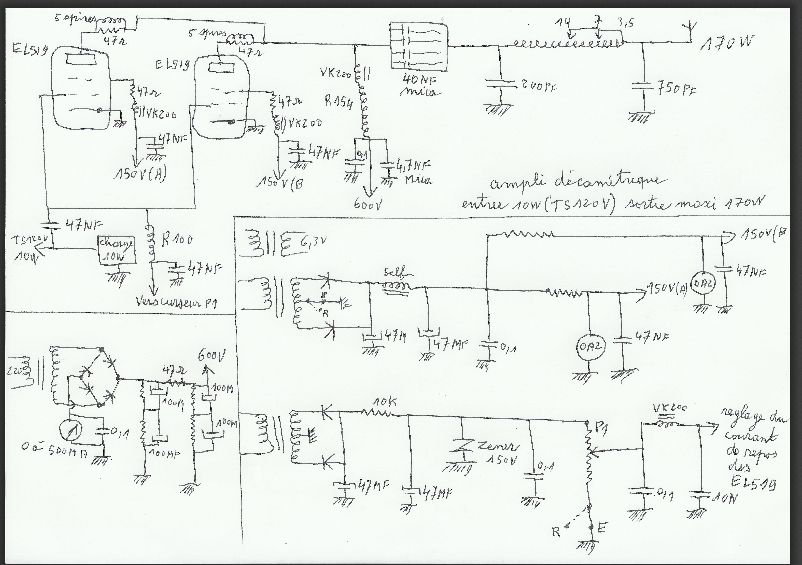 5 spires
47Ω
EL519
47Ω
VK200
47NF
150V(A)
5 spires
47Ω
EL519
47Ω
VK200
47NF
150V(B
VK200
R154
0,1
4,7NF
Mica
600V
40NF
mica
14 7 3,5
200PF
750PF
170W
ampli décamétrique
entrée 10W (TS120V) sortie maxi 170W
47NF
TS120V
10W
charge
10W
R100
47NF
Vers curseur P1
6,3V
self
R
47M
47MF
0,1
150V(B
150V(A)
OA2
47NF
OA2
47NF
220
0 à 500MA
0,1
47Ω
600V
100M
100MF
100M
100M
10K
47MF
47MF
Zener
150V
0,1
P1
R
E
VK200
0,1
10N
reglage du
courant
de repos
des
EL519